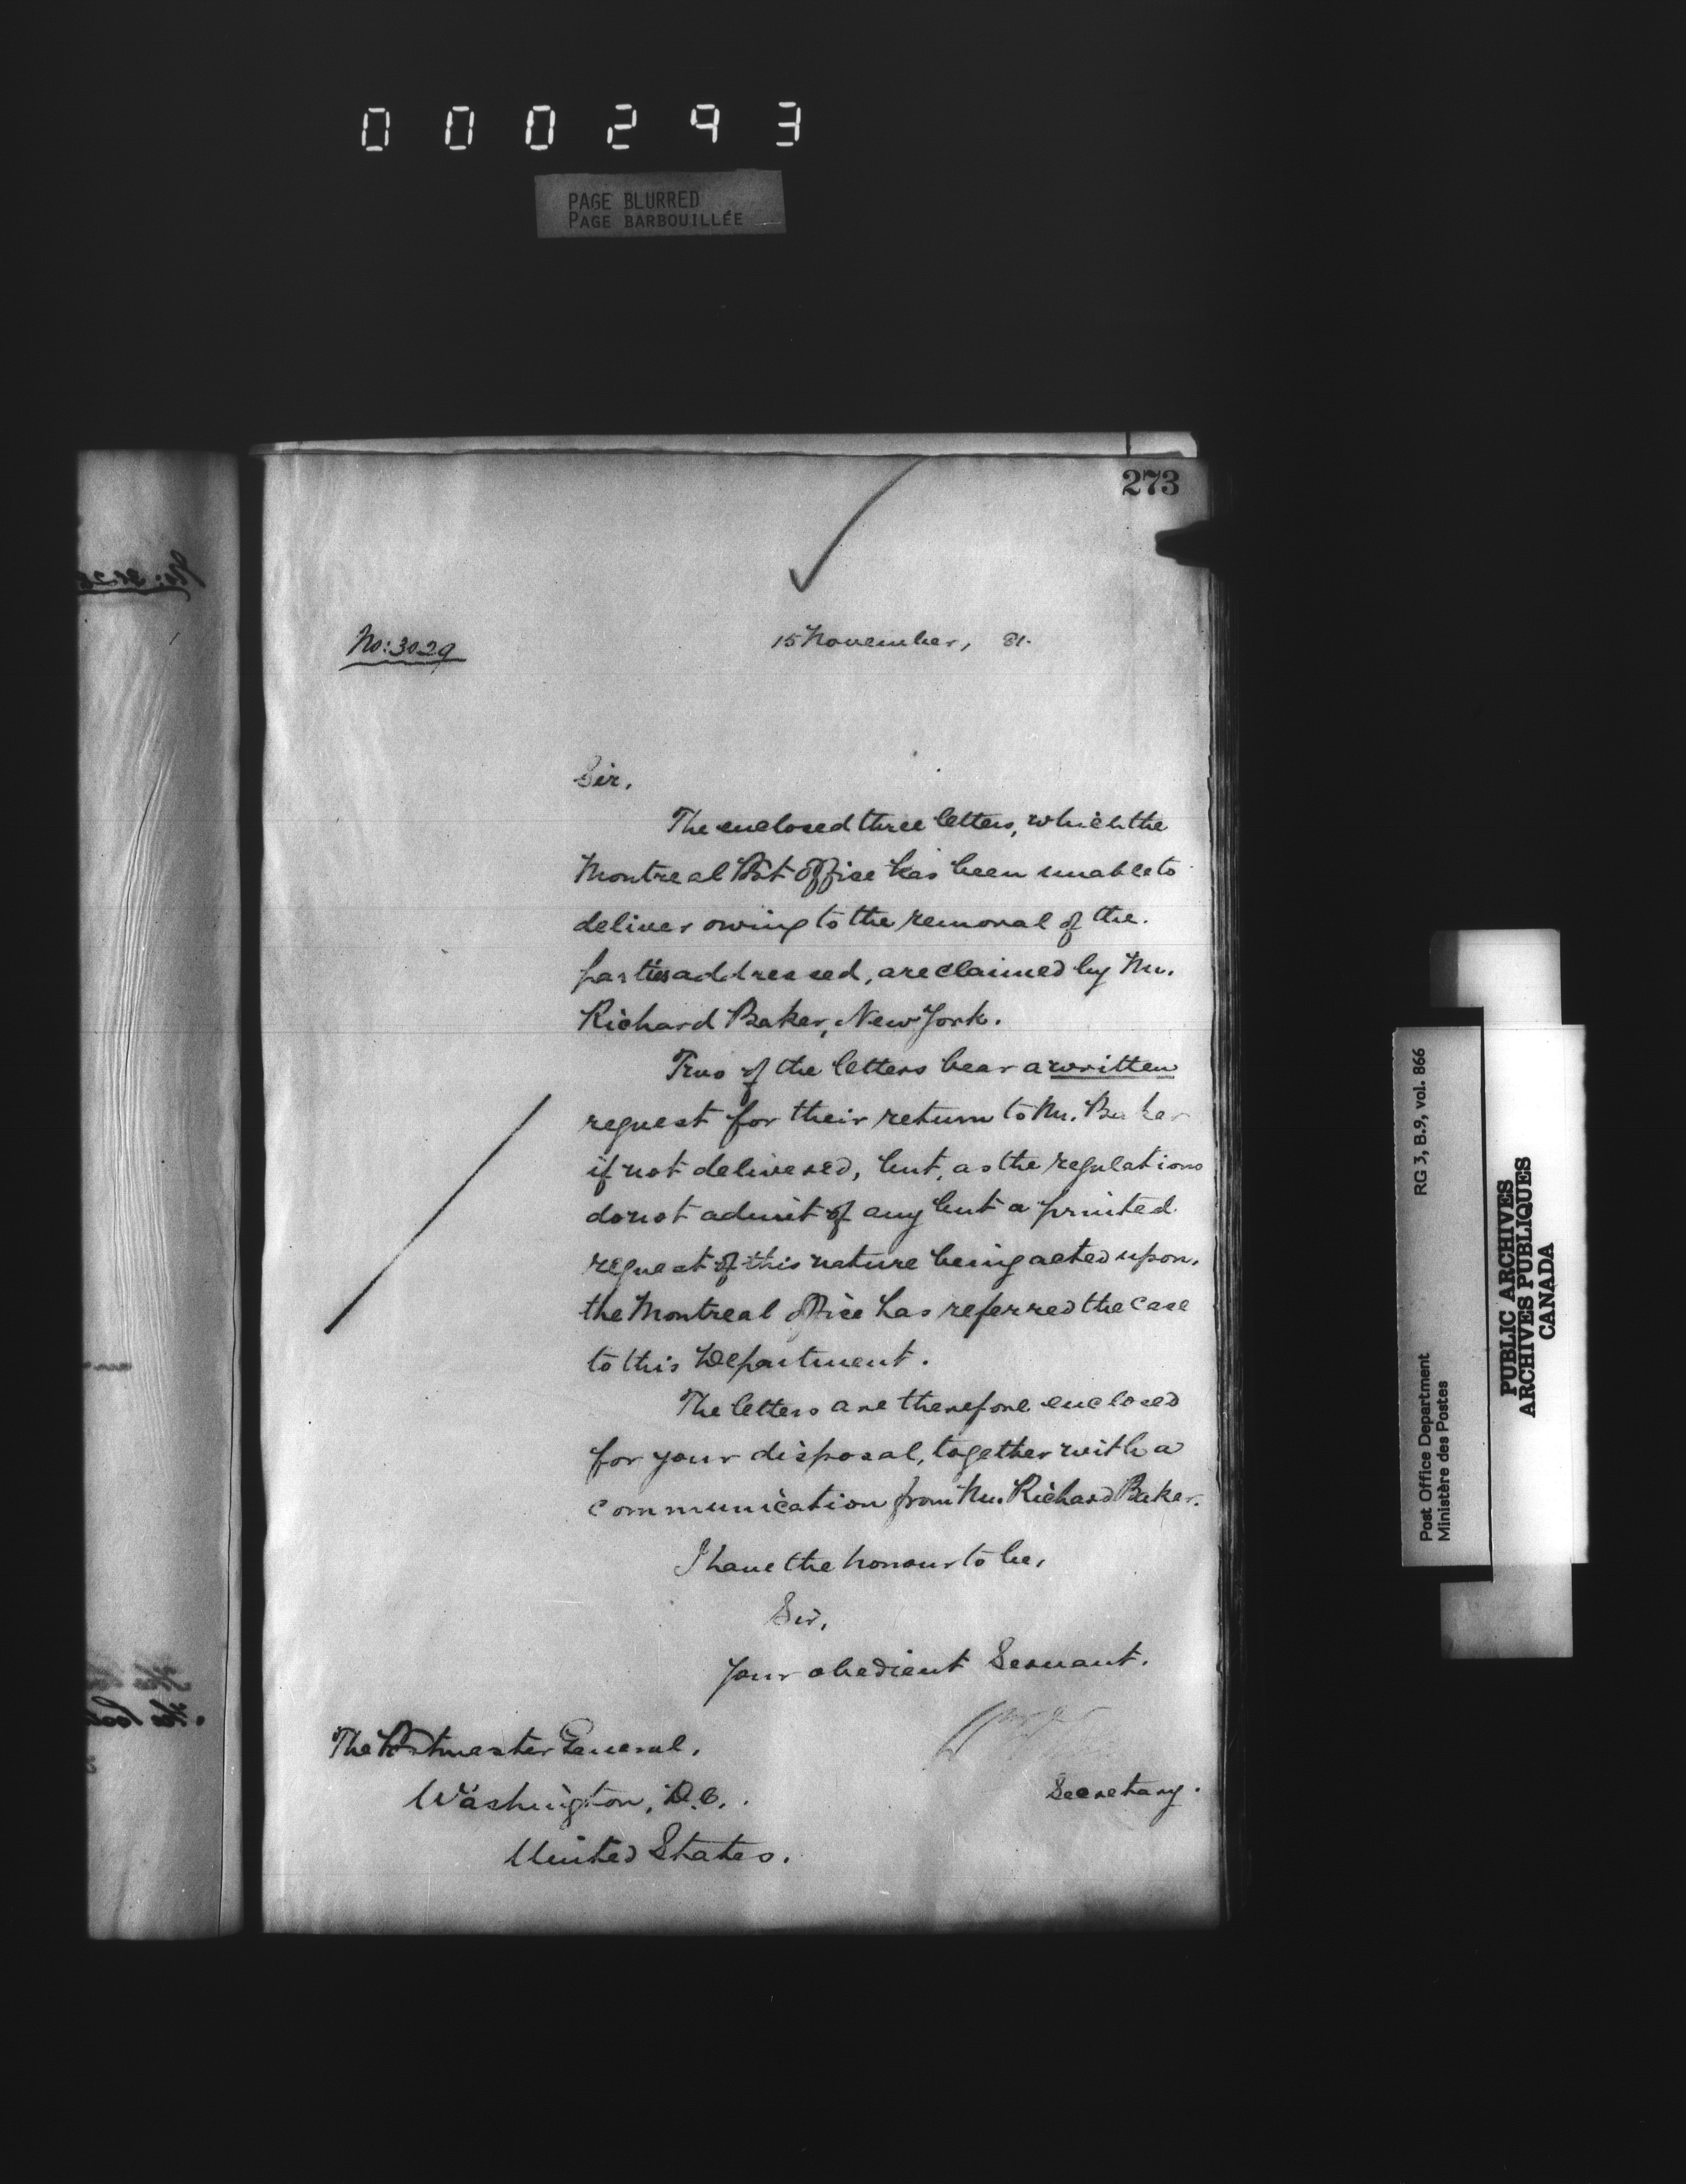 000293
PAGE BLURRED
PAGE BARBOUILLÉE
273
No: 3029
15 November, 81.
Sir,
The enclosed three letters, which the
Montreal Post Office has been unable to
deliver owing to the removal of the
parties addressed, are claimed by Mr.
Richard Baker, New York.
Two of the letters bear a written
request for their return to Mr. Baker
if not delivered, but, as the regulations
do not admit of any but a printed
request of this nature being acted upon,
the Montreal Office has referred the case
to this Department.
The letters are therefore enclosed
for your disposal, together with a
communication from Mr. Richard Baker.
I have the honour to be,
Sir,
Your obedient Servant.
Secretary.
The Postmaster General,
Washington, D.C.,
United States.
RG 3, B.9, vol. 866
Post Office Department
Ministère des Postes
PUBLIC ARCHIVES
ARCHIVES PUBLIQUES
CANADA